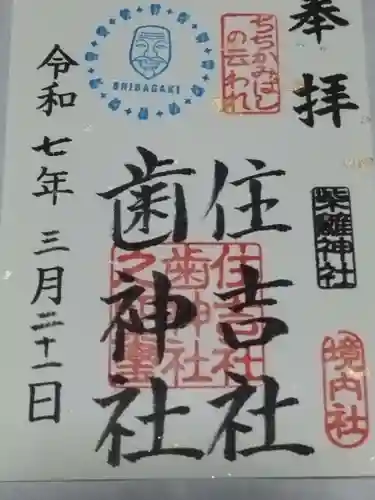 奉拝
ちちかみばし
の云われ
SHIBAGAKI
柴籬神社
境内社
住吉社
歯神社
住吉社
歯神社
令和七年三月二十一日